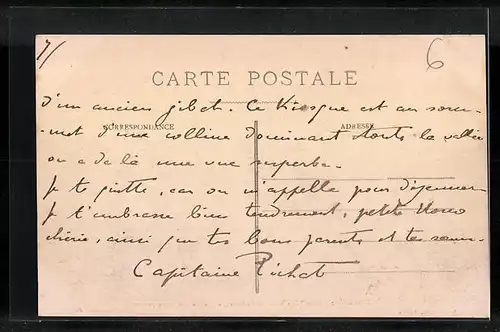 7/
6
CARTE POSTALE
d'un ancien gibet. Ce Kiosque est au som-
CORRESPONDANCE
ADRESSE
-met d'une colline dominant toute la vallée
on a de là une vue superbe.
Je te quitte, car on m'appelle pour déjeuner
Je t'embrasse bien tendrement, petite
chérie, ainsi que tes bons parents et ta sœur.
Capitaine Pichot